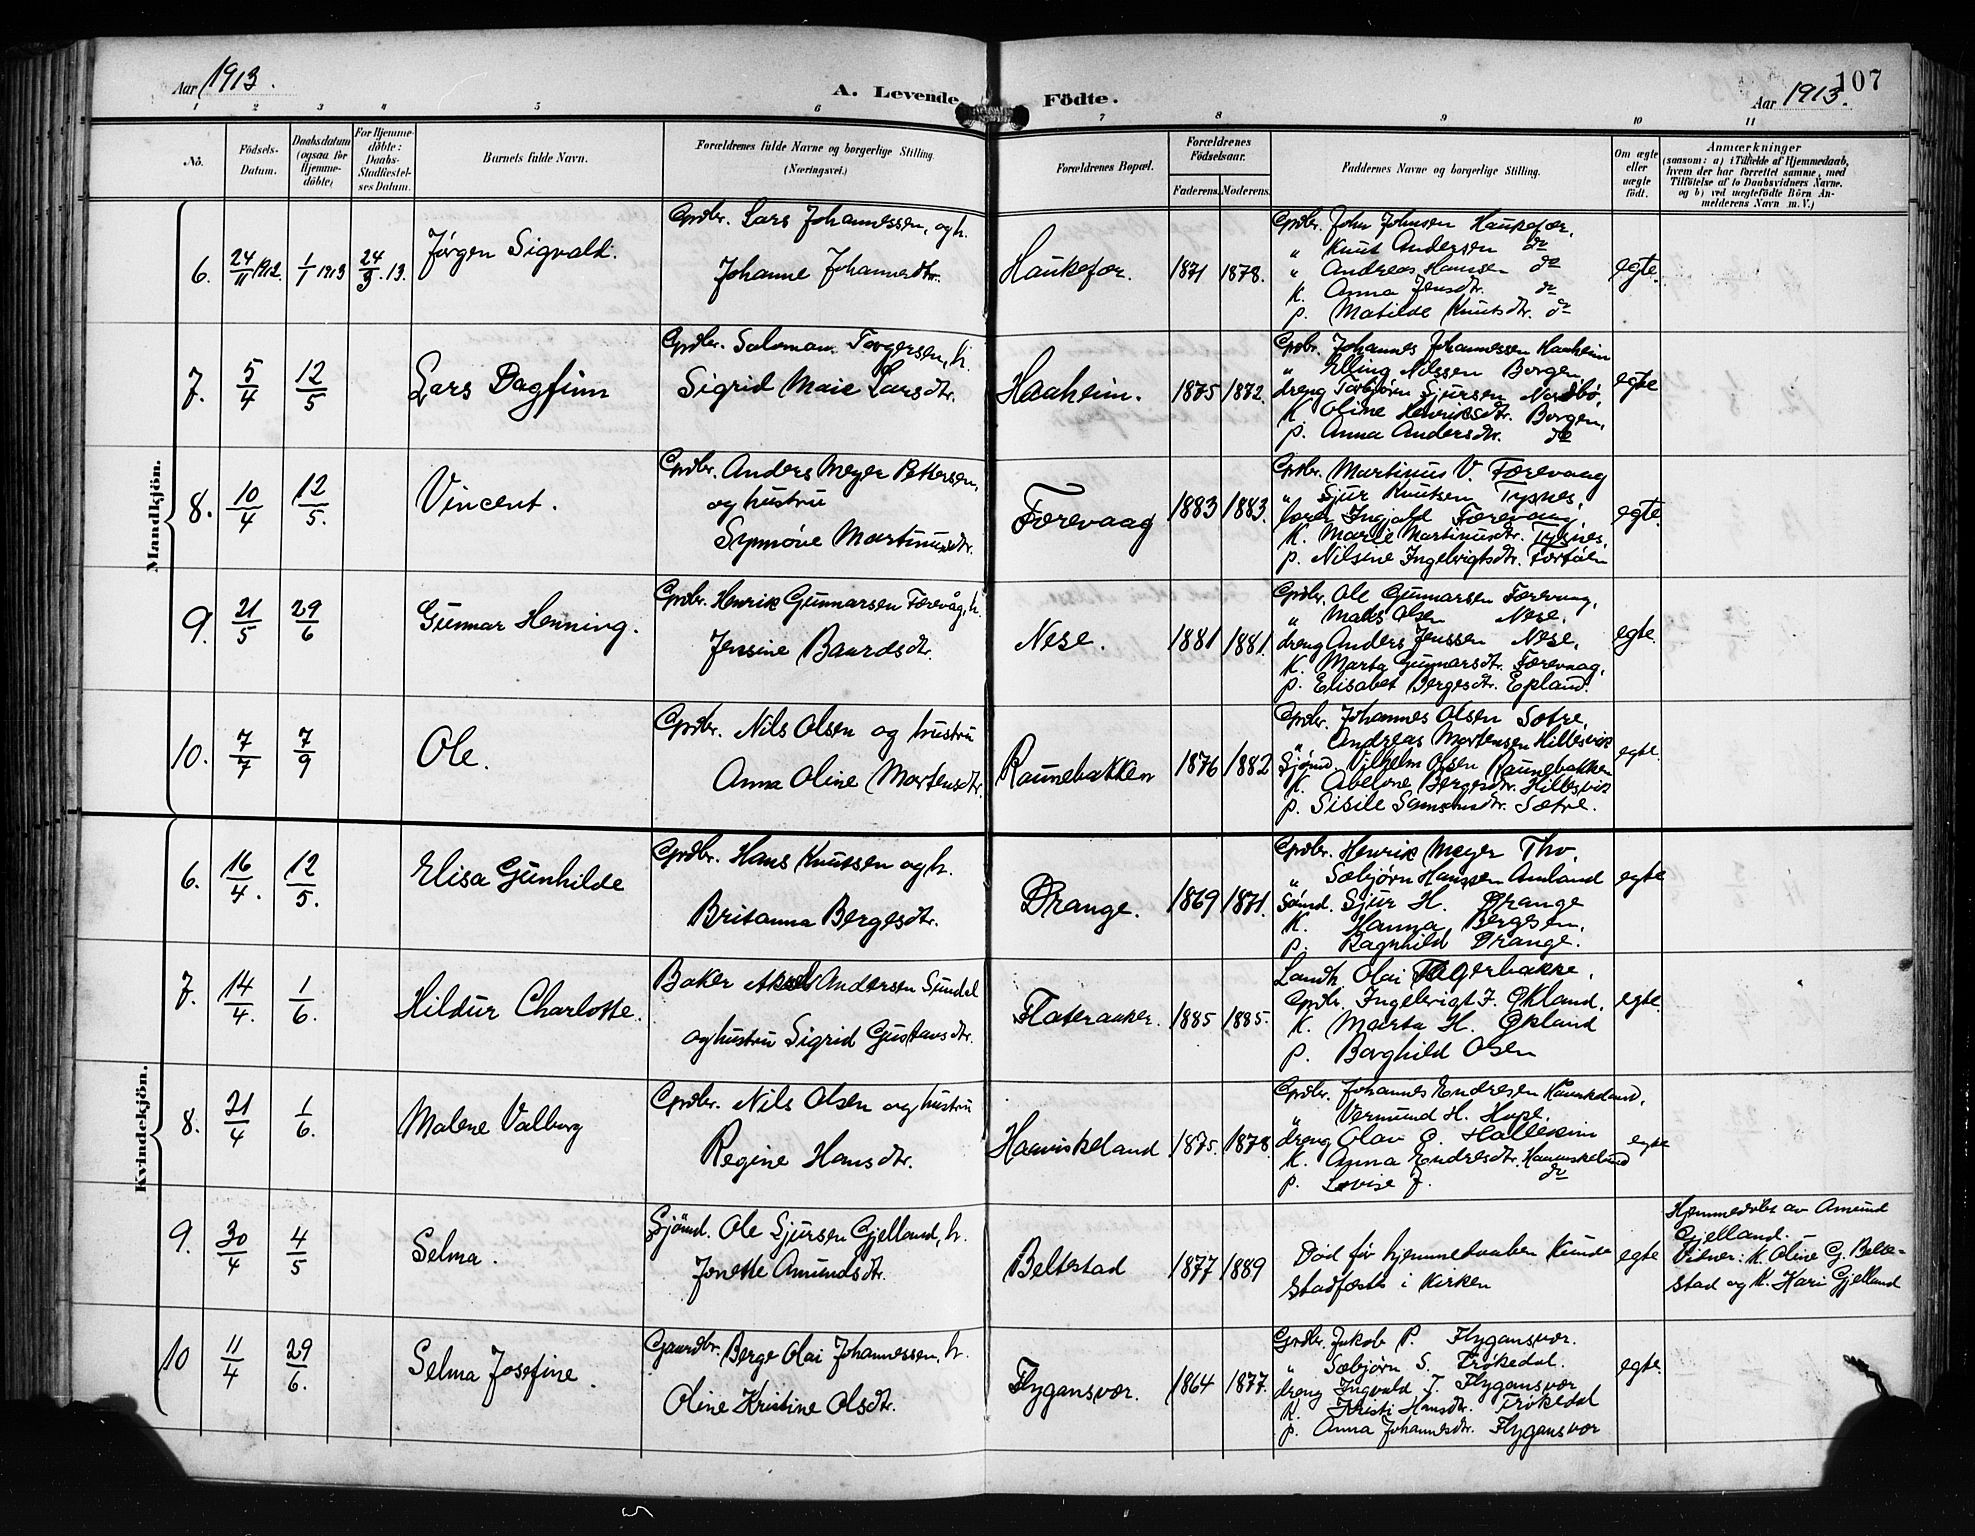 Aar 1913.
A. Levende Födte.
107
Aar 1913.
1 2 3 4 5 6 7 8 9 10 11
No.
Födsels-Datum.
Daabsdatum (ogsaa for Hjemme-döbte)
For Hjemme-döbte: Daabs-Stadfæstel-ses Datum.
Barnets fulde Navn.
Forældrenes fulde Navne og borgerlige Stilling. (Næringsvei.)
Forældrenes Bopæl.
Forældrenes Födselsaar.
Faderens. Moderens.
Faddernes Navne og borgerlige Stilling.
Om ægte eller uægte födt.
Anmærkninger
(saasom: a) i Tilfælde af Hjemmedaab,
hvem der har forrettet samme, med
Tilföielse af to Daabsvidners Navne.
og b) ved uægtefödte Börn An-
melderens Navn m. V.)
Mandkjön.
6. 24/11 1912. 1/1 1913 24/3 13. Jørgen Sigvald.
Grdbr. Lars Johannessen, og h.
Johanne Johannesdtr.
Haukefær. 1871 1878.
Grdbr. John Johnsen Haukefær.
" Knut Andersen do
" Andreas Hansen do
K. Anna Jensdtr. do
p. Matilde Knutsdtr. do
egte.
7. 5/4 12/5 Lars Dagfinn
Grdbr. Saloman Torgersen, h.
Sigrid Marie Larsdtr.
Haaheim. 1875 1872.
Grdbr. Johannes Johannessen Haaheim
" Elling Nilssen Borgen
dreng Torbjørn Sjursen Nordbø
K. Oline Henriksdtr. Borgen,
p. Anna Andersdtr. do
egte
8. 10/4 12/5. Vincent.
Grdbr. Anders Meyer Pettersen,
og hustru
Synnøve Martinusdtr.
Færevaag 1883 1883.
Grdbr. Martinus V. Færevaag
" Sjur Knutsen Tysnes,
Ingjald Færevaag.
K. Marie Martinusdtr. Tysnes.
p. Nilsine Ingebrigtsdtr.
egte.
9. 21/5 29/6 Gunnar Henning.
Grdbr. Henrik Gunnarsen Færevåg, h.
Jensine Baardsdtr.
Nese. 1881 1881.
Grdbr. Ole Gunnarsen Færevaag,
" Mads Olsen Nese,
dreng Anders Jenssen Nese,
K. Marta Gunnarsdtr. Færevaag,
p. Elisabet Bergesdtr. Epland.
egte.
10. 7/7 7/9 Ole.
Grdbr. Nils Olsen og hustru
Anna Oline Mortensdtr.
Raunebakken 1876 1882
Grdbr. Johannes Olsen Sætre,
" Andreas Mortensen Hillesvik
Sjömd. Vilhelm Olsen Raunebakken
K. Abelone Bergesdtr. Hillesvik
p. Sisile Samsonsdtr. Sætre.
egte.
Kvindekjön.
6. 16/4. 12/5. Elisa Gunhilde
Grdbr. Hans Knutsen og h.
Britanna Bergesdtr.
Drange. 1869 1871.
Grdbr. Henrik Meyer Tho.
" Sæbjørn Hanssen Amland
Sømd. Sjur H. Drange
K. Hanna Bergsen,
p. Ragnhild Drange.
egte
7. 14/4. 1/6. Hildur Charlotte.
Baker Aksel Andersen Sundal
og hustru Sigrid Gustavsdtr.
Flateraaker. 1885 1885.
Landh. Olai Fagerbakke,
Grdbr. Ingebrigt J. Økland,
K. Marta H. Økland
p. Borghild Olsen
egte.
8. 21/4 1/6. Malene Valborg
Grdbr. Nils Olsen og hustru
Regine Hansdtr.
Haaviskeland 1875. 1878.
Grdbr. Johannes Endresen
" Vermund H. Hope,
dreng Olav O.
K. Anna Endresdtr.
p. Lovise J. do
egte
9. 30/4 4/5 Selma.
Sjömd. Ole Sjursen Gjelland, h.
Jonette Amundsdtr.
Beltestad 1877 1889
Död før hjemmedaaben kunde
stadfæstes i kirken
egte
Hjemmedøbt av Amund
Gjelland.
Vidner: K. Oline G. Belte-
stad og K. Kari Gjelland
10 11/4 29/6. Selma Josefine.
Gaardbr. Berge Olai Johannessen, h.
Oline Kristine Olsdtr.
Flygansvær. 1864 1877.
Grdbr. Jakob P. Flygansvær.
" Sæbjørn S. Frøkedal.
dreng Ingvald J. Flygansvær
K. Kristi Hansdtr. Frøkedal
p. Anna Johannesdtr. Flygansvær
egte.